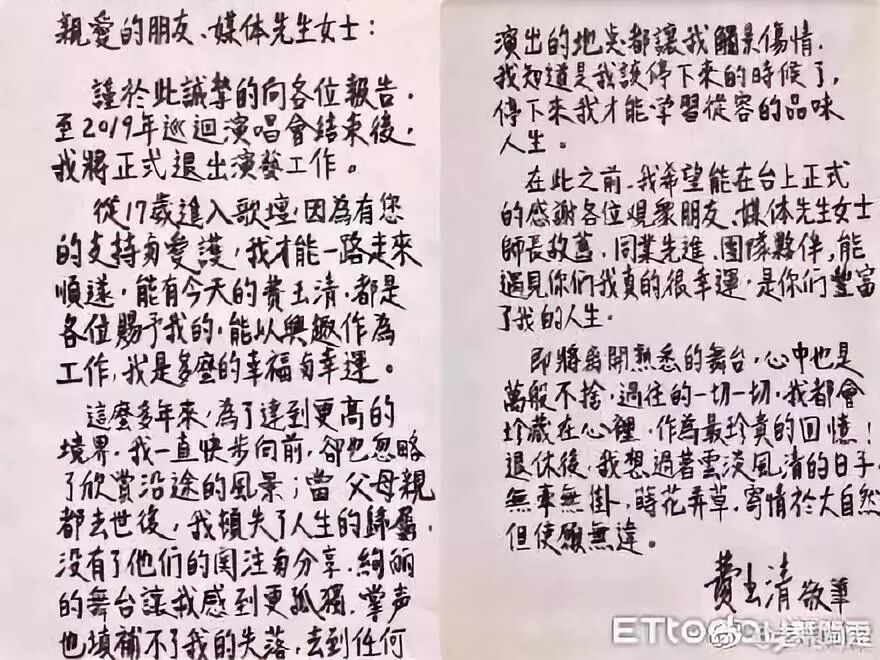 親愛的朋友、媒体先生女士：
謹於此誠摯的向各位報告，
至2019年巡迴演唱會結束後，
我將正式退出演藝工作。
從17歲進入歌壇，因為有您
的支持与愛護，我才能一路走來
順遂，能有今天的費玉清，都是
各位賜予我的，能以興趣作為
工作，我是多麼的幸福与幸運。
這麼多年來，為了達到更高的
境界，我一直快步向前，卻也忽略
了欣賞沿途的風景；當 父母親
都去世後，我頓失了人生的歸屬，
没有了他們的関注与分享，絢麗
的舞台讓我感到更孤獨，掌声
也填補不了我的失落，去到任何
演出的地点都讓我觸景傷情，
我知道是我該停下來的時候了，
停下來我才能学習從容的品味
人生。
在此之前，我希望能在台上正式
的感謝各位覌衆朋友、媒体先生女士
師長故舊、同業先進、團隊夥伴，能
遇見你们我真的很幸運，是你们豐富
了我的人生。
即將离開熟悉的舞台，心中也是
萬般不捨，過往的一切一切，我都會
珍藏在心裡，作為最珍貴的回憶！
退休後，我想過著雲淡風清的日子，
無牽無掛，蒔花弄草，寄情於大自然
但使願無違。
費玉清 敬筆
ETtoday